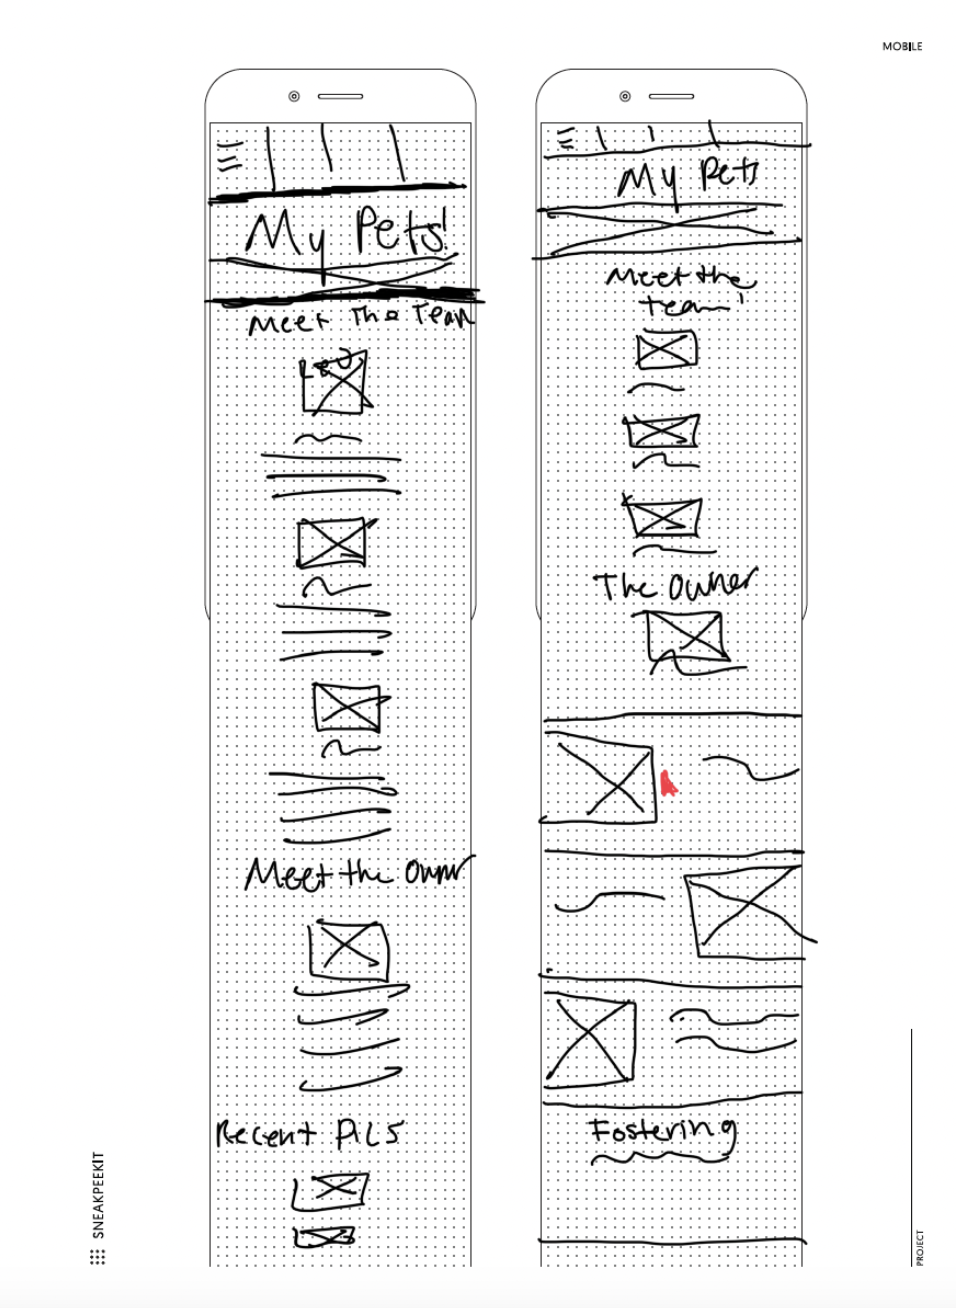 MOBILE
My Pets!
Meet The Team
Meet the Ownr
Recent Pics
My Pets
Meet the
Team!
The Owner
Fostering
SNEAKPEEKIT
PROJECT